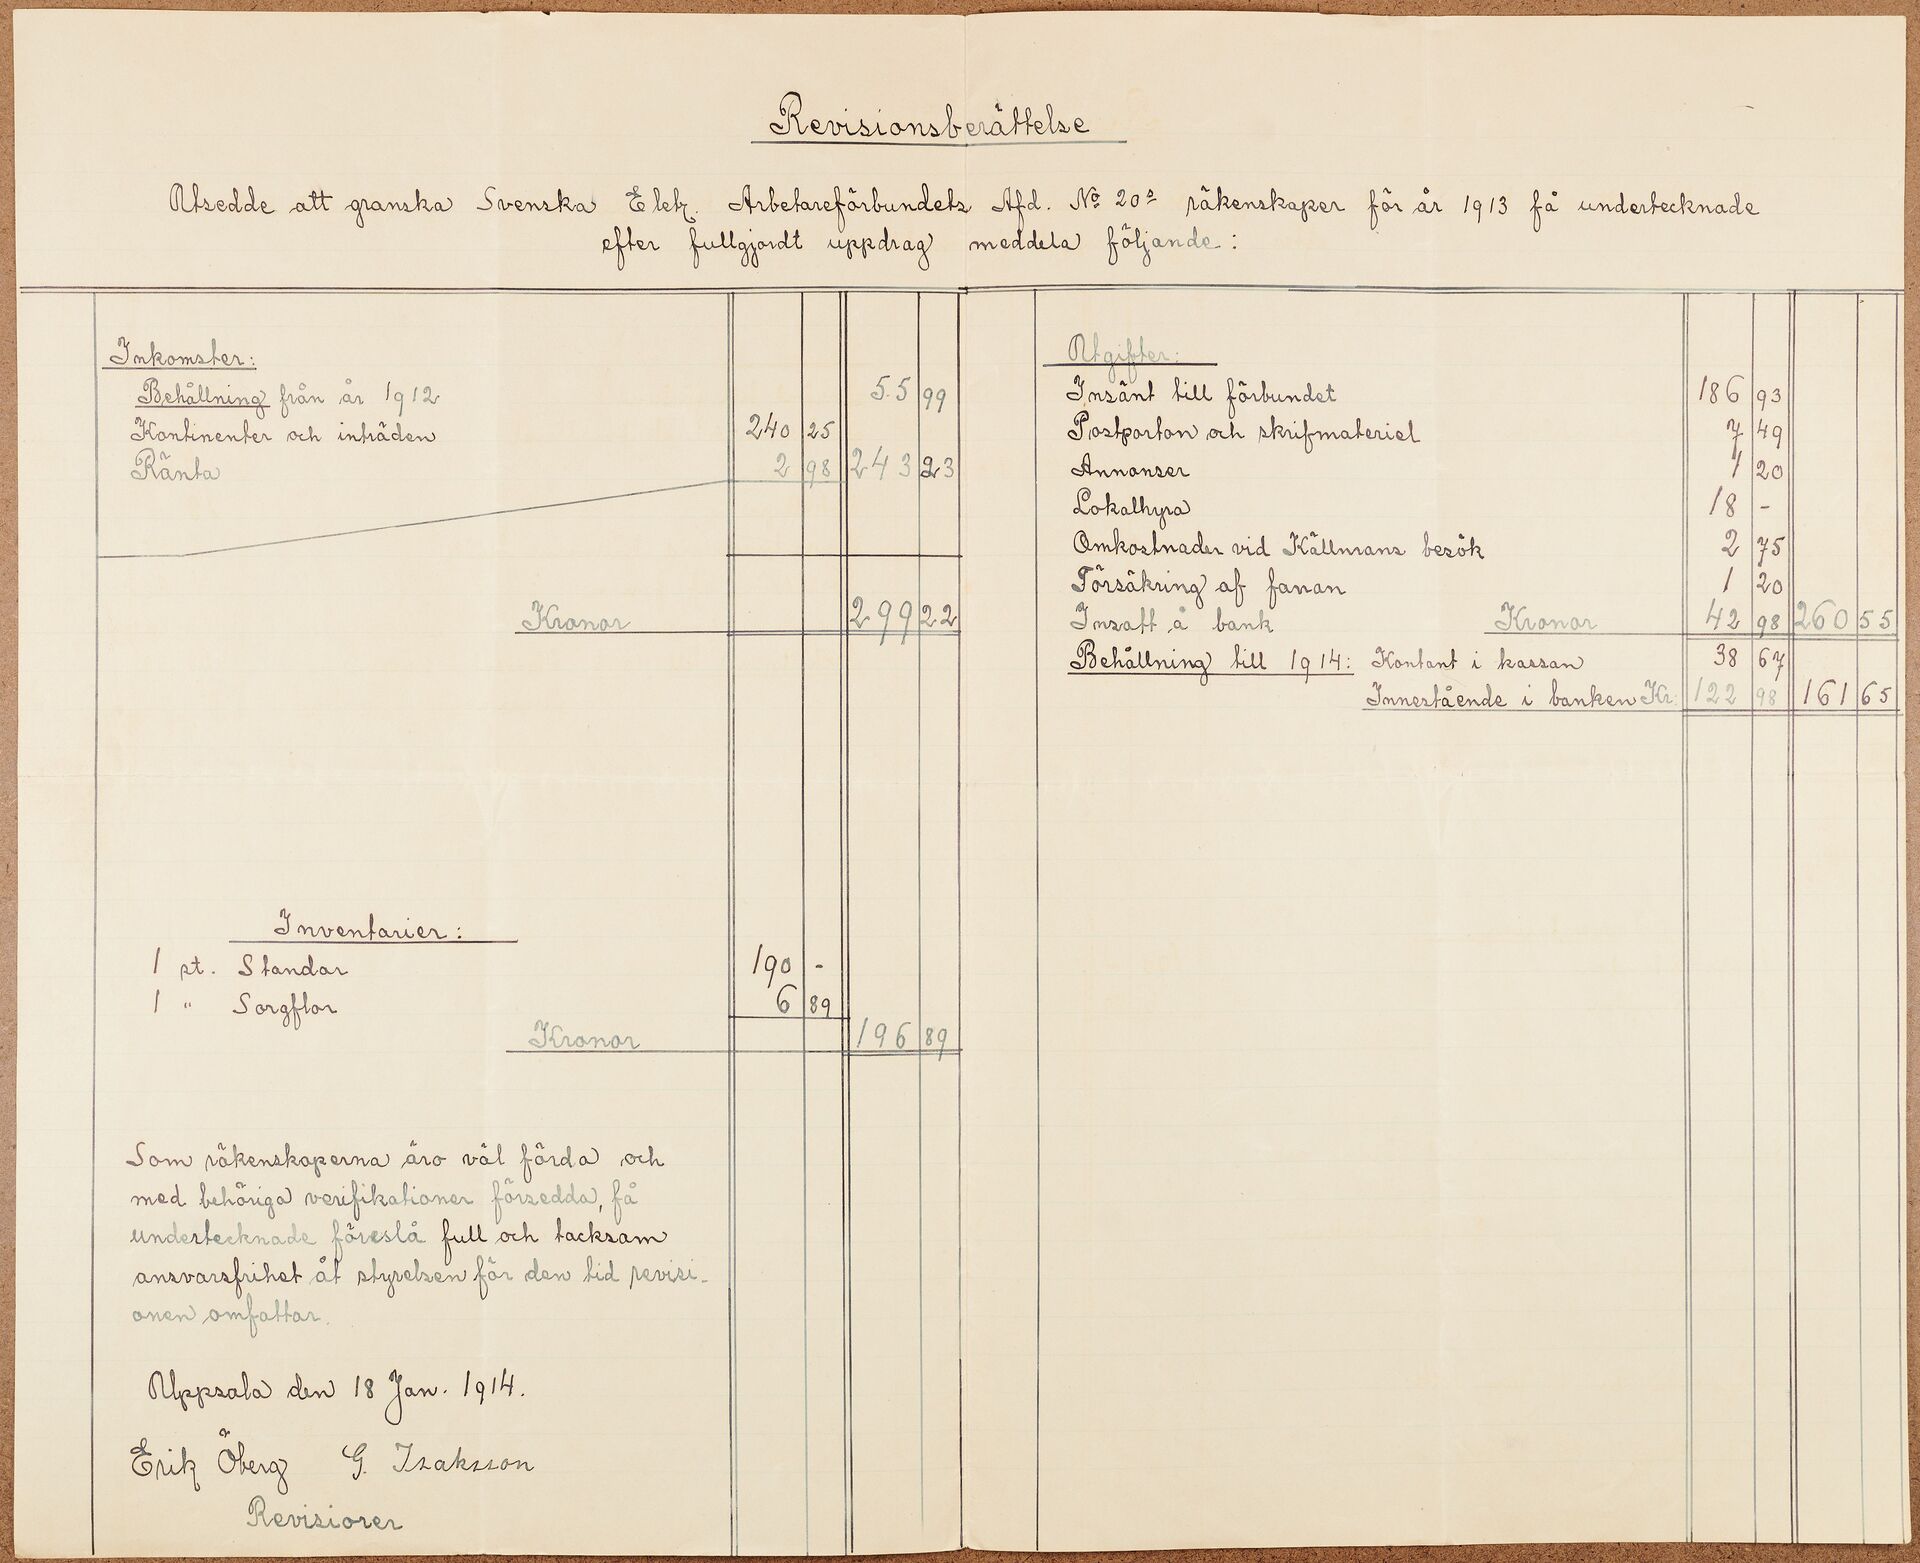 Revisionsberättelse
Utsedde att granska Svenska Elek. Arbetareförbundets Afd. No 20s räkenskaper för år 1913 få undertecknade
efter fullgjordt uppdrag meddela följande:
Inkomster:
Behållning från år 1912 55 99
Kontinenter och inträden 240 25
Ränta 2 98 243 23
Kronor 299 22
Utgifter:
Insänt till förbundet 186 93
Postporton och skrifmateriel 7 49
Annonser 1 20
Lokalhyra 18 -
Omkostnader vid Källmans besök 2 75
Försäkring af fanan 1 20
Insatt å bank Kronor 42 98 260 55
Behållning till 1914: Kontant i kassan 38 67
Innestående i banken Kr. 122 98 161 65
Inventarier:
1 st. Standar 190 -
1 " Sorgflor 6 89
Kronor 196 89
Som räkenskaperna äro väl förda och
med behöriga verifikationer försedda, få
undertecknade föreslå full och tacksam
ansvarsfrihet åt styrelsen för den tid revisi-
onen omfattar.
Uppsala den 18 Jan. 1914.
Erik Öberg G. Isaksson
Revisiorer